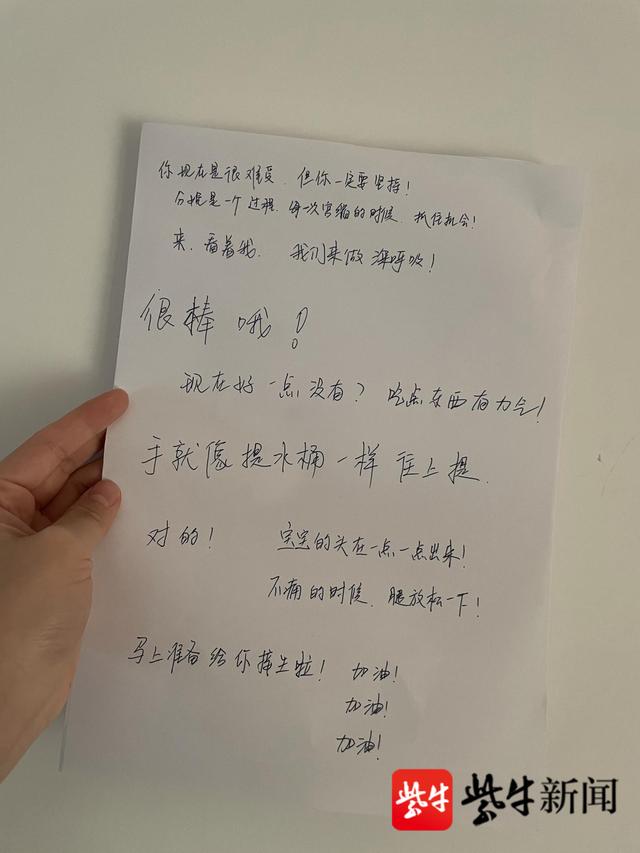 你现在是很难受，但你一定要坚持！
分娩是一个过程，每一次宫缩的时候，抓住机会！
来，看着我，我们来做深呼吸！
很棒哦！
现在好一点没有？吃点东西有力气！
手就像提水桶一样往上提.
对的！宝宝的头在一点一点出来！
不痛的时候，腿放松一下！
马上准备给你接生啦！加油！
加油！
加油！
紫牛 紫牛新闻